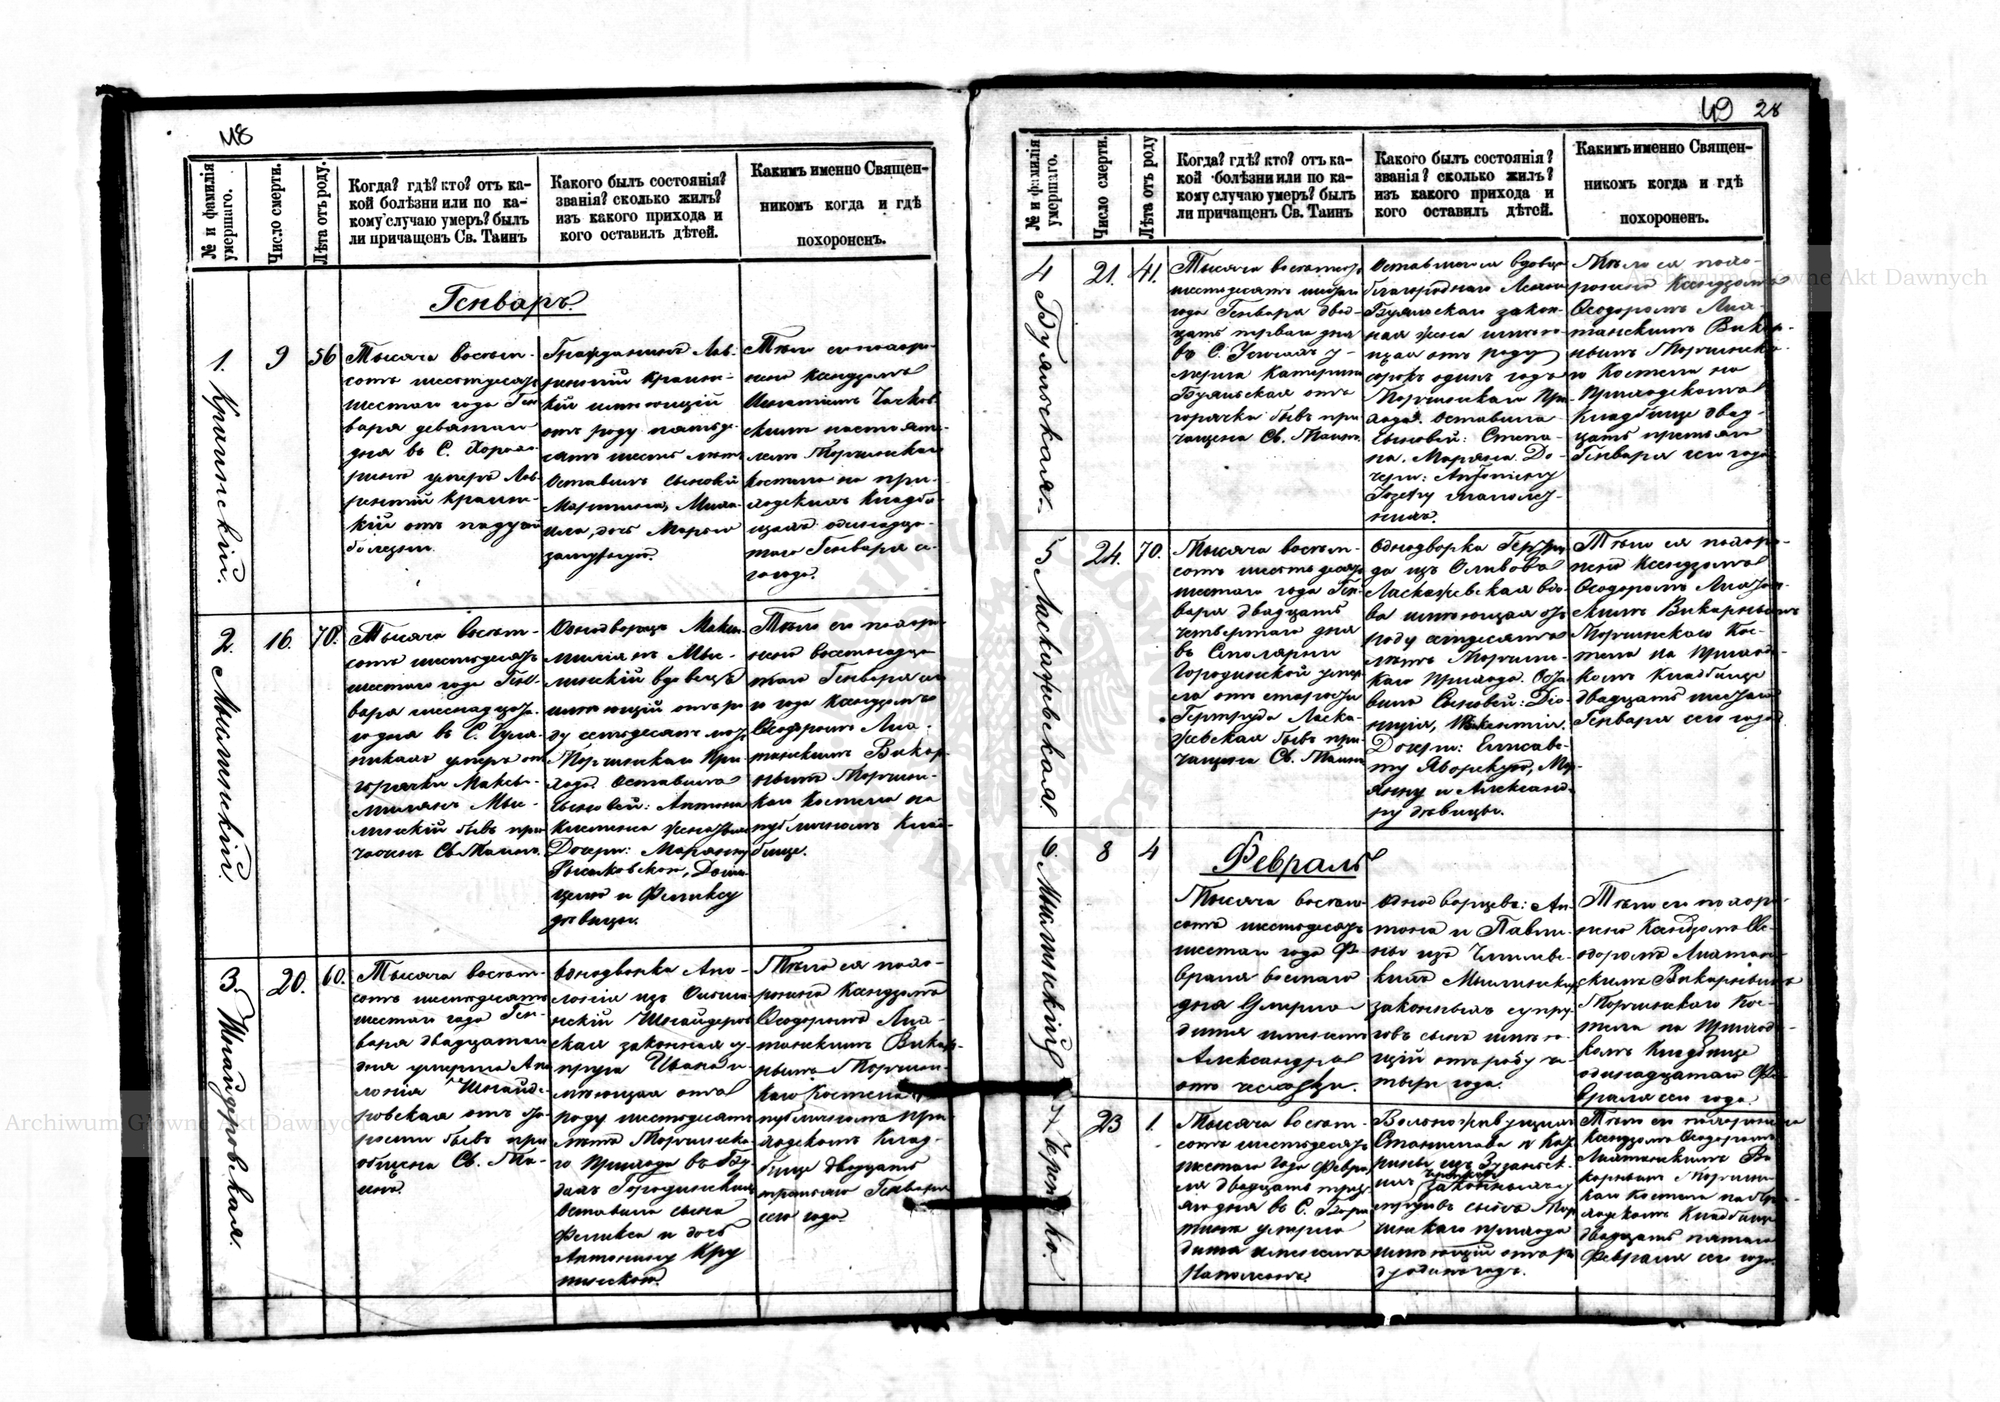 48
№ и фамилія умершаго.
Число смерти.
Лѣта отъ роду.
Когда? гдѣ? кто? отъ ка-
кой болѣзни или по ка-
кому случаю умеръ? былъ
ли причащенъ Св. Таинъ
Какого былъ состоянія?
званія? сколько жилъ?
изъ какого прихода и
кого оставилъ дѣтей.
Какимъ именно Священ-
никомъ когда и гдѣ
похороненъ.
Генварь.
1. Крашнскій.
9
56
Тысяча восемь-
сотъ шестьдесятъ
шестаго года Ген-
варя девятаго
дня въ С.
умеръ Лав-
рентій
кій отъ падучей
болезни.
Гражданинъ Лав-
рентій
кій имѣющій
отъ роду пятьде-
сятъ шесть лѣтъ
Оставилъ сыновей
Мартина, Миха-
ила, дочь Марью
замужную.
Тѣло его похоро-
нено Ксендзомъ
настояте-
лемъ Торчинскаго
костела на при-
ходскомъ Кладби-
щѣ одинадца-
таго Генваря с.
года.
2. Мыслинскій.
16.
70.
Тысяча восемь-
сотъ шестьдесятъ
шестаго года Ген-
варя шеснадцата-
го дня въ С.
умеръ отъ
горячки Макси-
миліянъ Мыс-
линскій бывъ при-
чащенъ Св. Таинъ.
Однодворецъ Макси-
миліянъ Мыс-
линскій вдовецъ
имѣющій отъ ро-
ду семьдесятъ лѣтъ
Торчинскаго При-
хода. Оставилъ
сыновей: Антона
Дочери: Марянну
и Феликсу
дѣвицы.
Тѣло его похоро-
нено восемнадца-
таго Генваря се-
го года Ксендзомъ
Ѳеодоромъ Лиа-
танскимъ Викар-
нымъ Торчинс-
каго Костела на
публичномъ Клад-
бище.
3. Шнайдеровская.
20.
60.
Тысяча восемь-
сотъ шестьдесятъ
шестаго года Ген-
варя двадцатаго
дня умерла Апо-
лонія Шнайде-
ровская отъ ста-
рости бывъ при-
общена Св. Та-
инъ.
Однодворка Апо-
лонія изъ
Шнайдеров-
ская законная су-
пруга Ивана и-
мѣющая отъ
роду шестьдесятъ
лѣтъ Торчинска-
го Прихода въ Бу-
дахъ Городинскихъ
Оставила сына
Феликса и дочь
Антонину Кру-
пинскою.
Тѣло ея похо-
ронено Ксендзомъ
Ѳеодоромъ Лиа-
танскимъ Викар-
нымъ Торчинс-
каго Костела на
публичномъ при-
ходскомъ Клад-
бище двадцать
третьяго Генваря
сего года.
49 28
№ и фамилія умершаго.
Число смерти.
Лѣта отъ роду
Когда? гдѣ? кто? отъ ка-
кой болѣзни или по ка-
кому случаю умеръ? былъ
ли причащенъ Св. Таинъ
Какого былъ состоянія?
званія? сколько жилъ?
изъ какого прихода и
кого оставилъ дѣтей.
Какимъ именно Священ-
никомъ когда и гдѣ
похороненъ.
4 Буяльская.
21.
41.
Тысяча восемьсотъ
шестьдесятъ шестаго
года Генваря двад-
цать перваго дня
въ С. у-
мерла Катерина
Буяльская отъ
горячки бывъ при-
чащена Св. Таинъ.
благороднаго
Буяльскаго закон-
ная жена имѣю-
щая отъ роду
сорокъ одинъ годъ
Торчинскаго При-
хода. Оставила
сыновей: Степа-
на, Маряна До-
чери: Антонину
Юзефу малолѣт-
нихъ.
Тѣло ея похо-
ронено Ксендзомъ
Ѳеодоромъ Лиа-
танскимъ Викар-
нымъ Торчинска-
го Костела на
Приходскомъ
Кладбище двад-
цать третьяго
Генваря сего года.
5 Ласкаржевская
24.
70.
Тысяча восемь-
сотъ шестьдесятъ
шестаго года Ген-
варя двадцать
четвертаго дня
въ Столярни
Городинской умер-
ла отъ старости
Гертруда Ласка-
ржевская бывъ при-
чащена Св. Таинъ
Однодворка Гертру-
да изъ
Ласкаржевская вдо-
ва имѣющая отъ
роду семьдесятъ
лѣтъ Торчинс-
каго Прихода. Оста-
вила Сыновей: Діо-
низія, Викентія,
Дочери: Елисаве-
ту Яворскую, Мар-
янну и Александ-
ру дѣвицы.
Тѣло ея похоро-
нено Ксендзомъ
Ѳеодоромъ Лиатан-
скимъ Викарнымъ
Торчинскаго Кос-
тела на Приход-
комъ Кладбище
двадцать шестаго
Генваря сего года.
Февраль
6. Мыслинскій
8
4
Тысяча восемь-
сотъ шестьдесятъ
шестаго года Фе-
враля восьмаго
дня умерло
дитя именемъ
Александръ
отъ
Однодворцевъ: Ан-
тона и Павли-
ны изъ
кихъ Мыслинскихъ
законныхъ супру-
говъ сынъ имѣю-
щій отъ роду че-
тыри года.
Тѣло его похоро-
нено Ксендзомъ Ѳе-
одоромъ Лиатан-
скимъ Викарнымъ
Торчинскаго Кос-
тела на Приход-
комъ Кладбище
одинадцатаго Фе-
враля сего года.
23
1.
Тысяча восемь-
сотъ шестьдесятъ
шестаго года Февра-
ля двадцать треть-
яго дня въ С.
умерло
дитя именемъ
Наполеонъ.
Станислава и
законныхъ
супруговъ сынъ Тор-
чинскаго прихода
имѣющій отъ ро-
ду одинъ годъ.
Тѣло его похоронено
Ксендзомъ Ѳеодоромъ
Лиатанскимъ Ви-
карнымъ Торчинс-
каго Костела на При-
ходскомъ Кладбище
двадцать пятаго
Февраля сего года.
Archiwum Główne Akt Dawnych
Archiwum Główne Akt Dawnych